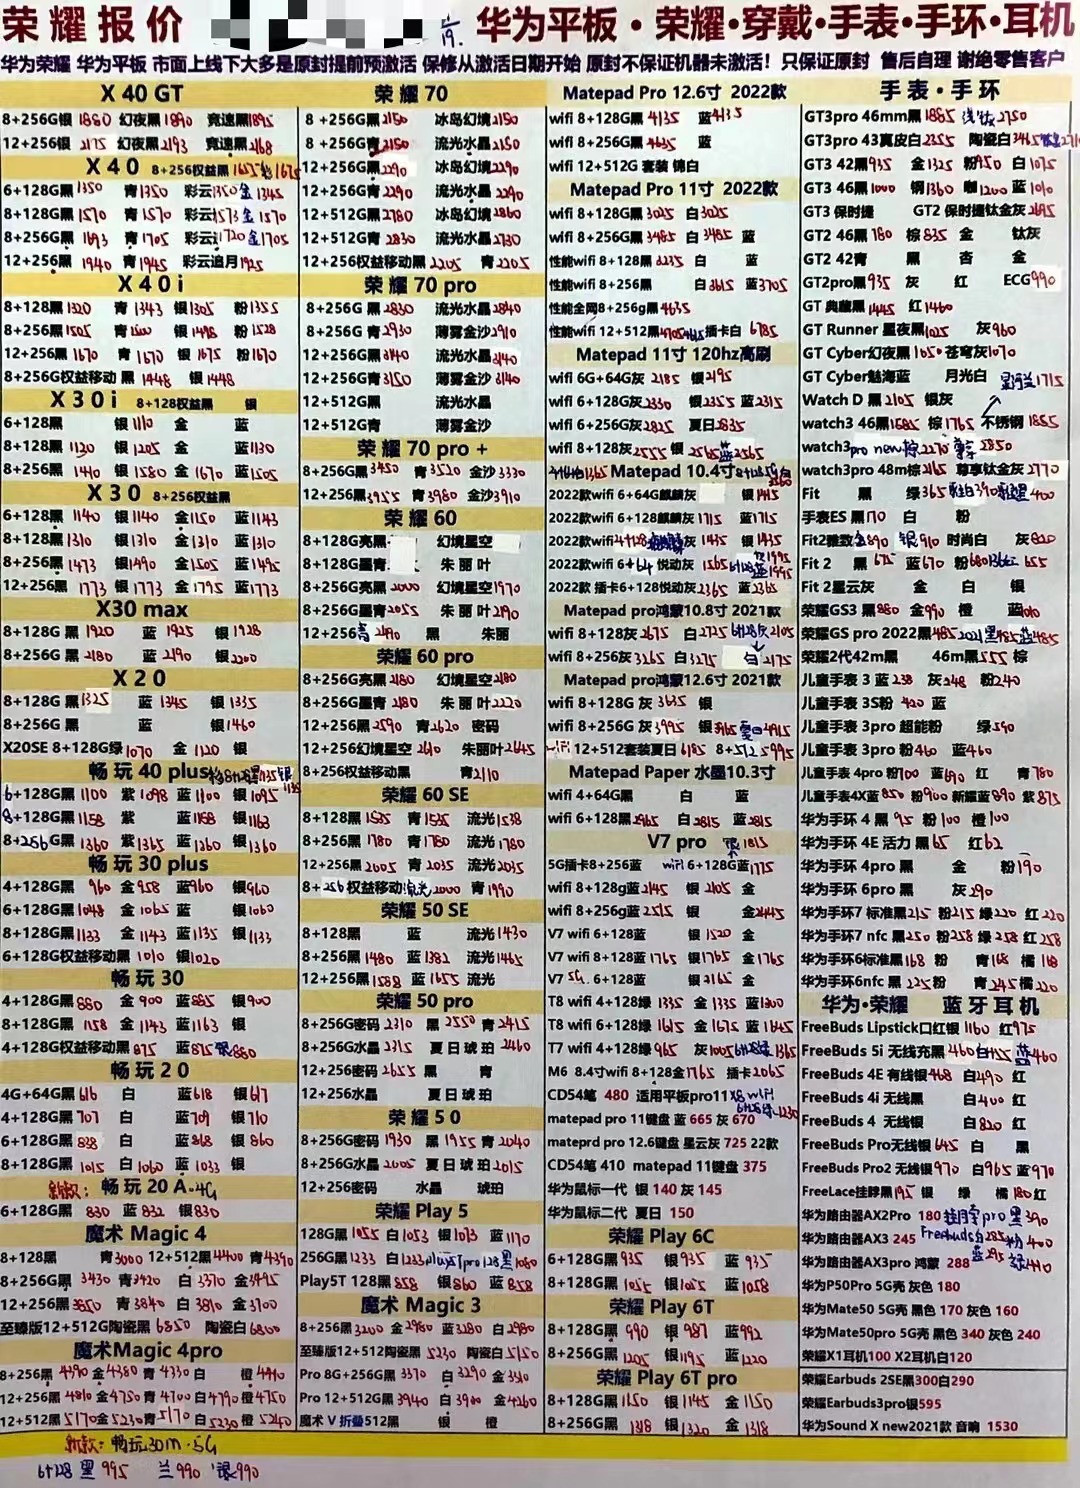 荣耀报价
19.
华为平板·荣耀·穿戴·手表·手环·耳机
华为荣耀 华为平板 市面上线下大多是原封提前预激活 保修从激活日期开始 原封不保证机器未激活！只保证原封 售后自理 谢绝零售客户
X 40 GT
8+256G银1880 幻夜黑1890 竞速黑1895
12+256银 2175 幻夜黑2193 竞速黑2168
X40 8+256权益黑1625
6+128G黑1350 青1350 彩云1350 金1345
8+128G黑1570 青1570 彩云1573 金1570
8+256G黑1693 青1705 彩云1720 金1705
12+256黑1940 青1945 彩云追月1925
X40i
8+128黑1320 青1343 银1305 粉1355
8+256黑1505 青1500 银1498 粉1528
12+256黑1670 青1670 银1675 粉1670
8+256G权益移动 黑1448 银1448
X30i 8+128权益黑 银
6+128黑 银1110 金 蓝
8+128黑1130 银1205 金 蓝1130
8+256黑1440 银1580 金1670 蓝1505
X30 8+256权益黑
6+128黑1140 银1140 金1150 蓝1143
8+128黑1310 银1310 金1310 蓝1310
8+256黑1473 银1490 金1505 蓝1495
12+256黑1773 银1773 金1795 蓝1773
X30 max
8+128G 黑1920 蓝1925 银1928
8+256G 黑2180 蓝2190 银2200
X20
8+128G 黑1325 蓝1345 银1335
8+256G 黑 蓝 银1460
X20SE 8+128G绿1070 金1120 银
畅玩40 plus
6+128G黑1100 紫1098 蓝1100 银1095
8+128G黑1158 紫 蓝1158 银1163
8+256G黑1360 紫1365 蓝1260 银1360
畅玩30 plus
4+128G黑960 金958 蓝960 银960
6+128G黑1048 金1065 蓝 银1060
8+128G黑1133 金1143 蓝1135 银1133
6+128G权益移动黑1010 银1020
畅玩30
4+128G黑880 金900 蓝885 银900
8+128G黑1158 金1143 蓝1163 银
4+128G权益移动黑875 蓝875 银880
畅玩20
4G+64G黑616 白 蓝618 银617
4+128G黑707 白 蓝709 银710
6+128G黑838 白 蓝868 银860
8+128G黑1015 白1060 蓝1033 银
新款：畅玩20A·4G
6+128G黑830 蓝832 银830
魔术 Magic 4
8+128黑 青3000 12+512黑4400 青4390
8+256G黑3430 青3420 白3370 金3495
12+256黑3850 青3840 白3810 金3700
至臻版12+512G陶瓷黑6850 陶瓷白6800
魔术Magic 4pro
8+256黑4390 金4380 青4330 白 橙4410
12+256黑4810 金4750 青4700 白4790 橙4750
12+512黑5170 金5230 青5170 白5230 橙5240
新款：畅玩30m·5G
6+128 黑995 兰990 银990
荣耀70
8+256G黑2150 冰岛幻境2150
8+256G青2150 流光水晶2150
12+256G黑2290 冰岛幻境2290
12+256G青2290 流光水晶2290
12+512G黑2780 冰岛幻境2860
12+512G青2830 流光水晶2730
12+256权益移动黑2205 青2205
荣耀70 pro
8+256G 黑2830 流光水晶2840
8+256G 青2930 薄雾金沙2910
12+256G黑3140 流光水晶3140
12+256G青3150 薄雾金沙3140
12+512G黑 流光水晶
12+512G青 薄雾金沙
荣耀70 pro +
8+256G黑3450 青3520 金沙3330
12+256黑3955 青3980 金沙3910
荣耀60
8+128G亮黑 幻境星空
8+128G墨青 朱丽叶
8+256G亮黑2000 幻境星空1970
8+256G墨青2055 朱丽叶2190
12+256青2490 黑 朱丽
荣耀60 pro
8+256G亮黑2180 幻境星空2180
8+256G墨青2180 朱丽叶2220
12+256黑2590 青2620 密码
12+256幻境星空2610 朱丽叶2645
8+256权益移动黑 青2110
荣耀60 SE
8+128黑1535 青1535 流光1538
8+256黑1780 青1780 流光1780
12+256黑2005 青2035 流光2035
8+256权益移动流光2000 青1990
荣耀50 SE
8+128黑 蓝 流光1430
8+256黑1480 蓝1382 流光1465
12+256黑1588 蓝1655 流光
荣耀50 pro
8+256G密码2310 黑2550 青2415
8+256G水晶2315 夏日琥珀2460
12+256密码2655 黑 青
12+256水晶 夏日琥珀
荣耀50
8+256G密码1930 黑1955 青2040
8+256G水晶2005 夏日琥珀2015
12+256密码 水晶 琥珀
荣耀 Play 5
128G黑1055 白1053 银1013 蓝1170
256G黑1233 白1233 play5Tpro 128黑1080
Play5T 128黑858 银860 蓝858
魔术 Magic 3
8+256黑3200 金2980 蓝3280 白2980
至臻版12+512陶瓷黑5230 陶瓷白5150
Pro 8G+256G黑3370 白3290 金3390
Pro 12+512G黑3940 白3900 金4260
魔术 V 折叠512黑 银 橙
Matepad Pro 12.6寸 2022款
wifi 8+128G黑4135 蓝4135
wifi 8+256G黑4635 蓝
wifi 12+512G 套装 锦白
Matepad Pro 11寸 2022款
wifi 8+128G黑3025 白3025
wifi 8+256G黑3485 白3485 蓝
性能wifi 8+128黑3235 白 蓝
性能wifi 8+256黑 白3615 蓝3705
性能全网8+256g黑4635
性能wifi 12+512黑 插卡白6785
Matepad 11寸 120hz高刷
wifi 6G+64G灰2185 银2195
wifi 6+128G灰2330 银2355 蓝2315
wifi 6+256G灰2825 夏日2835
wifi 8+128灰2555 银2565 蓝2565
Matepad 10.4寸
2022款wifi 6+64G麒麟灰 银1415
2022款wifi 6+128麒麟灰1715 蓝1715
2022款wifi4+128 灰1435 银1435
2022款wifi 6+64 悦动灰1565
2022款 插卡6+128悦动灰2365 蓝2365
Matepad pro鸿蒙10.8寸 2021款
wifi 8+128灰2675 白2725 6+128灰2105
wifi 8+256灰3265 白3275 白2175
Matepad pro鸿蒙12.6寸 2021款
wifi 8+128G 灰3635 银
wifi 8+256G 灰3995 银3965
wifi 12+512套装夏日6185 8+512 5995
Matepad Paper 水墨10.3寸
wifi 4+64G黑 白 蓝
wifi 6+128黑2965 白2815 蓝2815
V7 pro 银1815
5G插卡8+256蓝 wifi 6+128G蓝1775
wifi 8+128g蓝2145 银2105 金
wifi 8+256g蓝2515 银 金2445
V7 wifi 6+128蓝 银1520 金
V7 wifi 8+128蓝1765 银1765 金1765
V7 5G. 6+128蓝 银2165 金
T8 wifi 4+128绿1335 金1335 蓝1300
T8 wifi 6+128绿1615 金1675 蓝1645
T7 wifi 4+128绿965 灰1005 6+128绿1365
M6 8.4寸wifi 8+128金1765 插卡2065
CD54笔 480 适用平板pro11 X8 wifi
6+128绿1230
matepad pro 11键盘 蓝 665 灰 670
mateprd pro 12.6键盘 星云灰 725 22款
CD54笔 410 matepad 11键盘 375
华为鼠标一代 银 140 灰 145
华为鼠标二代 夏日 150
荣耀 Play 6C
6+128G黑935 银935 蓝935
8+128G黑1055 银1055 蓝1058
荣耀 Play 6T
8+128G黑990 银987 蓝992
8+256G黑1205 银1195 蓝1220
荣耀 Play 6T pro
8+128G黑1150 银1145 金1150
8+256G黑1318 银1320 金1318
手表·手环
GT3pro 46mm黑1885 浅钛2750
GT3pro 43真皮白2355 陶瓷白3465
GT3 42黑935 金1325 粉950 白1075
GT3 46黑1000 钢1360 咖1200 蓝1010
GT3 保时捷 GT2 保时捷钛金灰2695
GT2 46黑780 棕835 金 钛灰
GT2 42青 黑 杏 金
GT2pro黑935 灰 红 ECG990
GT 典藏黑1445 红1460
GT Runner 星夜黑1025 灰960
GT Cyber幻夜黑1050 苍穹灰1070
GT Cyber魅海蓝 月光白 星河兰1715
Watch D 黑2105 银灰
watch3 46黑1685 棕1765 不锈钢1855
watch3pro new棕2270 尊享2850
watch3pro 48m棕2165 尊享钛金灰2770
Fit 黑 绿365
手表ES 黑170 白 粉
Fit2雅致金890 银910 时尚白 灰820
Fit 2 黑675 蓝670 粉680
Fit 2星云灰 金 白 银
荣耀GS3 黑880 金990 橙 蓝1010
荣耀GS pro 2022黑485 2021黑485 蓝485
荣耀2代42m黑 46m黑555 棕
儿童手表 3 蓝238 灰248 粉240
儿童手表 3S粉420 蓝
儿童手表 3pro 超能粉 绿590
儿童手表 3pro 粉460 蓝460
儿童手表 4pro 粉700 蓝690 红 青780
儿童手表4X蓝850 粉900 新耀蓝890 紫875
华为手环 4 黑95 粉100 橙100
华为手环 4E 活力 黑65 红62
华为手环 4pro 黑 金 粉190
华为手环 6pro 黑 灰290
华为手环7 标准黑215 粉215 绿220 红220
华为手环7 nfc 黑250 粉258 绿258 红258
华为手环6标准黑168 粉 青168 橘168
华为手环6nfc 黑225 粉 青245 橘220
华为·荣耀 蓝牙耳机
FreeBuds Lipstick口红银1160 红975
FreeBuds 5i 无线充黑460 白455 蓝460
FreeBuds 4E 有线银468 白490 红
FreeBuds 4i 无线黑 白400 红
FreeBuds 4 无线银 白820 红
FreeBuds Pro无线银645 白 黑
FreeBuds Pro2 无线银970 白965 蓝970
FreeLace挂脖黑195 银 绿 橘180 红
华为路由器AX2Pro 180 挂脖pro黑390
华为路由器AX3 245 Freebuds
华为路由器AX3pro 鸿蒙 288
华为P50Pro 5G壳 灰色 180
华为Mate50 5G壳 黑色 170 灰色 160
华为Mate50pro 5G壳 黑色 340 灰色 240
荣耀X1耳机100 X2耳机白120
荣耀Earbuds 2SE黑300白290
荣耀Earbuds3pro银595
华为Sound X new2021款 音响 1530